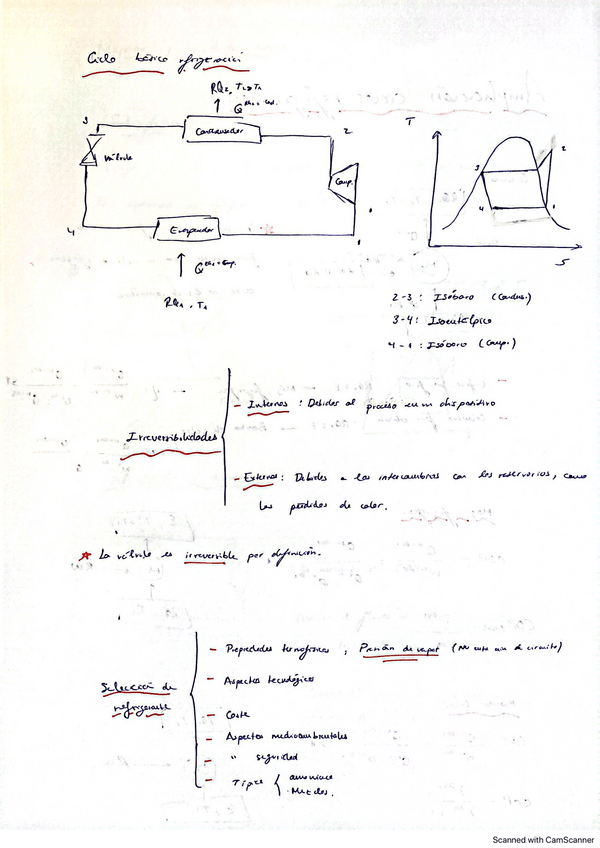 Ciclo básico refrigeración
RQ2, T2>TA
Q
3
Condensador
2
T
Válvula
Comp.
3
2
4
1
4
Evaporador
1
S
Q
RQA, TA
2-3: Isóbaro (Condens.)
3-4: Isoentálpico
4-1: Isóbaro (Comp.)
- Internas: Debidas al proceso en un dispositivo
Irreversibilidades
- Externas: Debidas a los intercambios con los reservorios, como
las pérdidas de calor.
* La válvula es irreversible por definición.
- Propiedades termofísicas, Presión de vapor
Selección de
refrigerante
- Aspectos tecnológicos
- Coste
- Aspectos medioambientales
- " seguridad
- Tipos
amoniaco
Mezclas.
Scanned with CamScanner